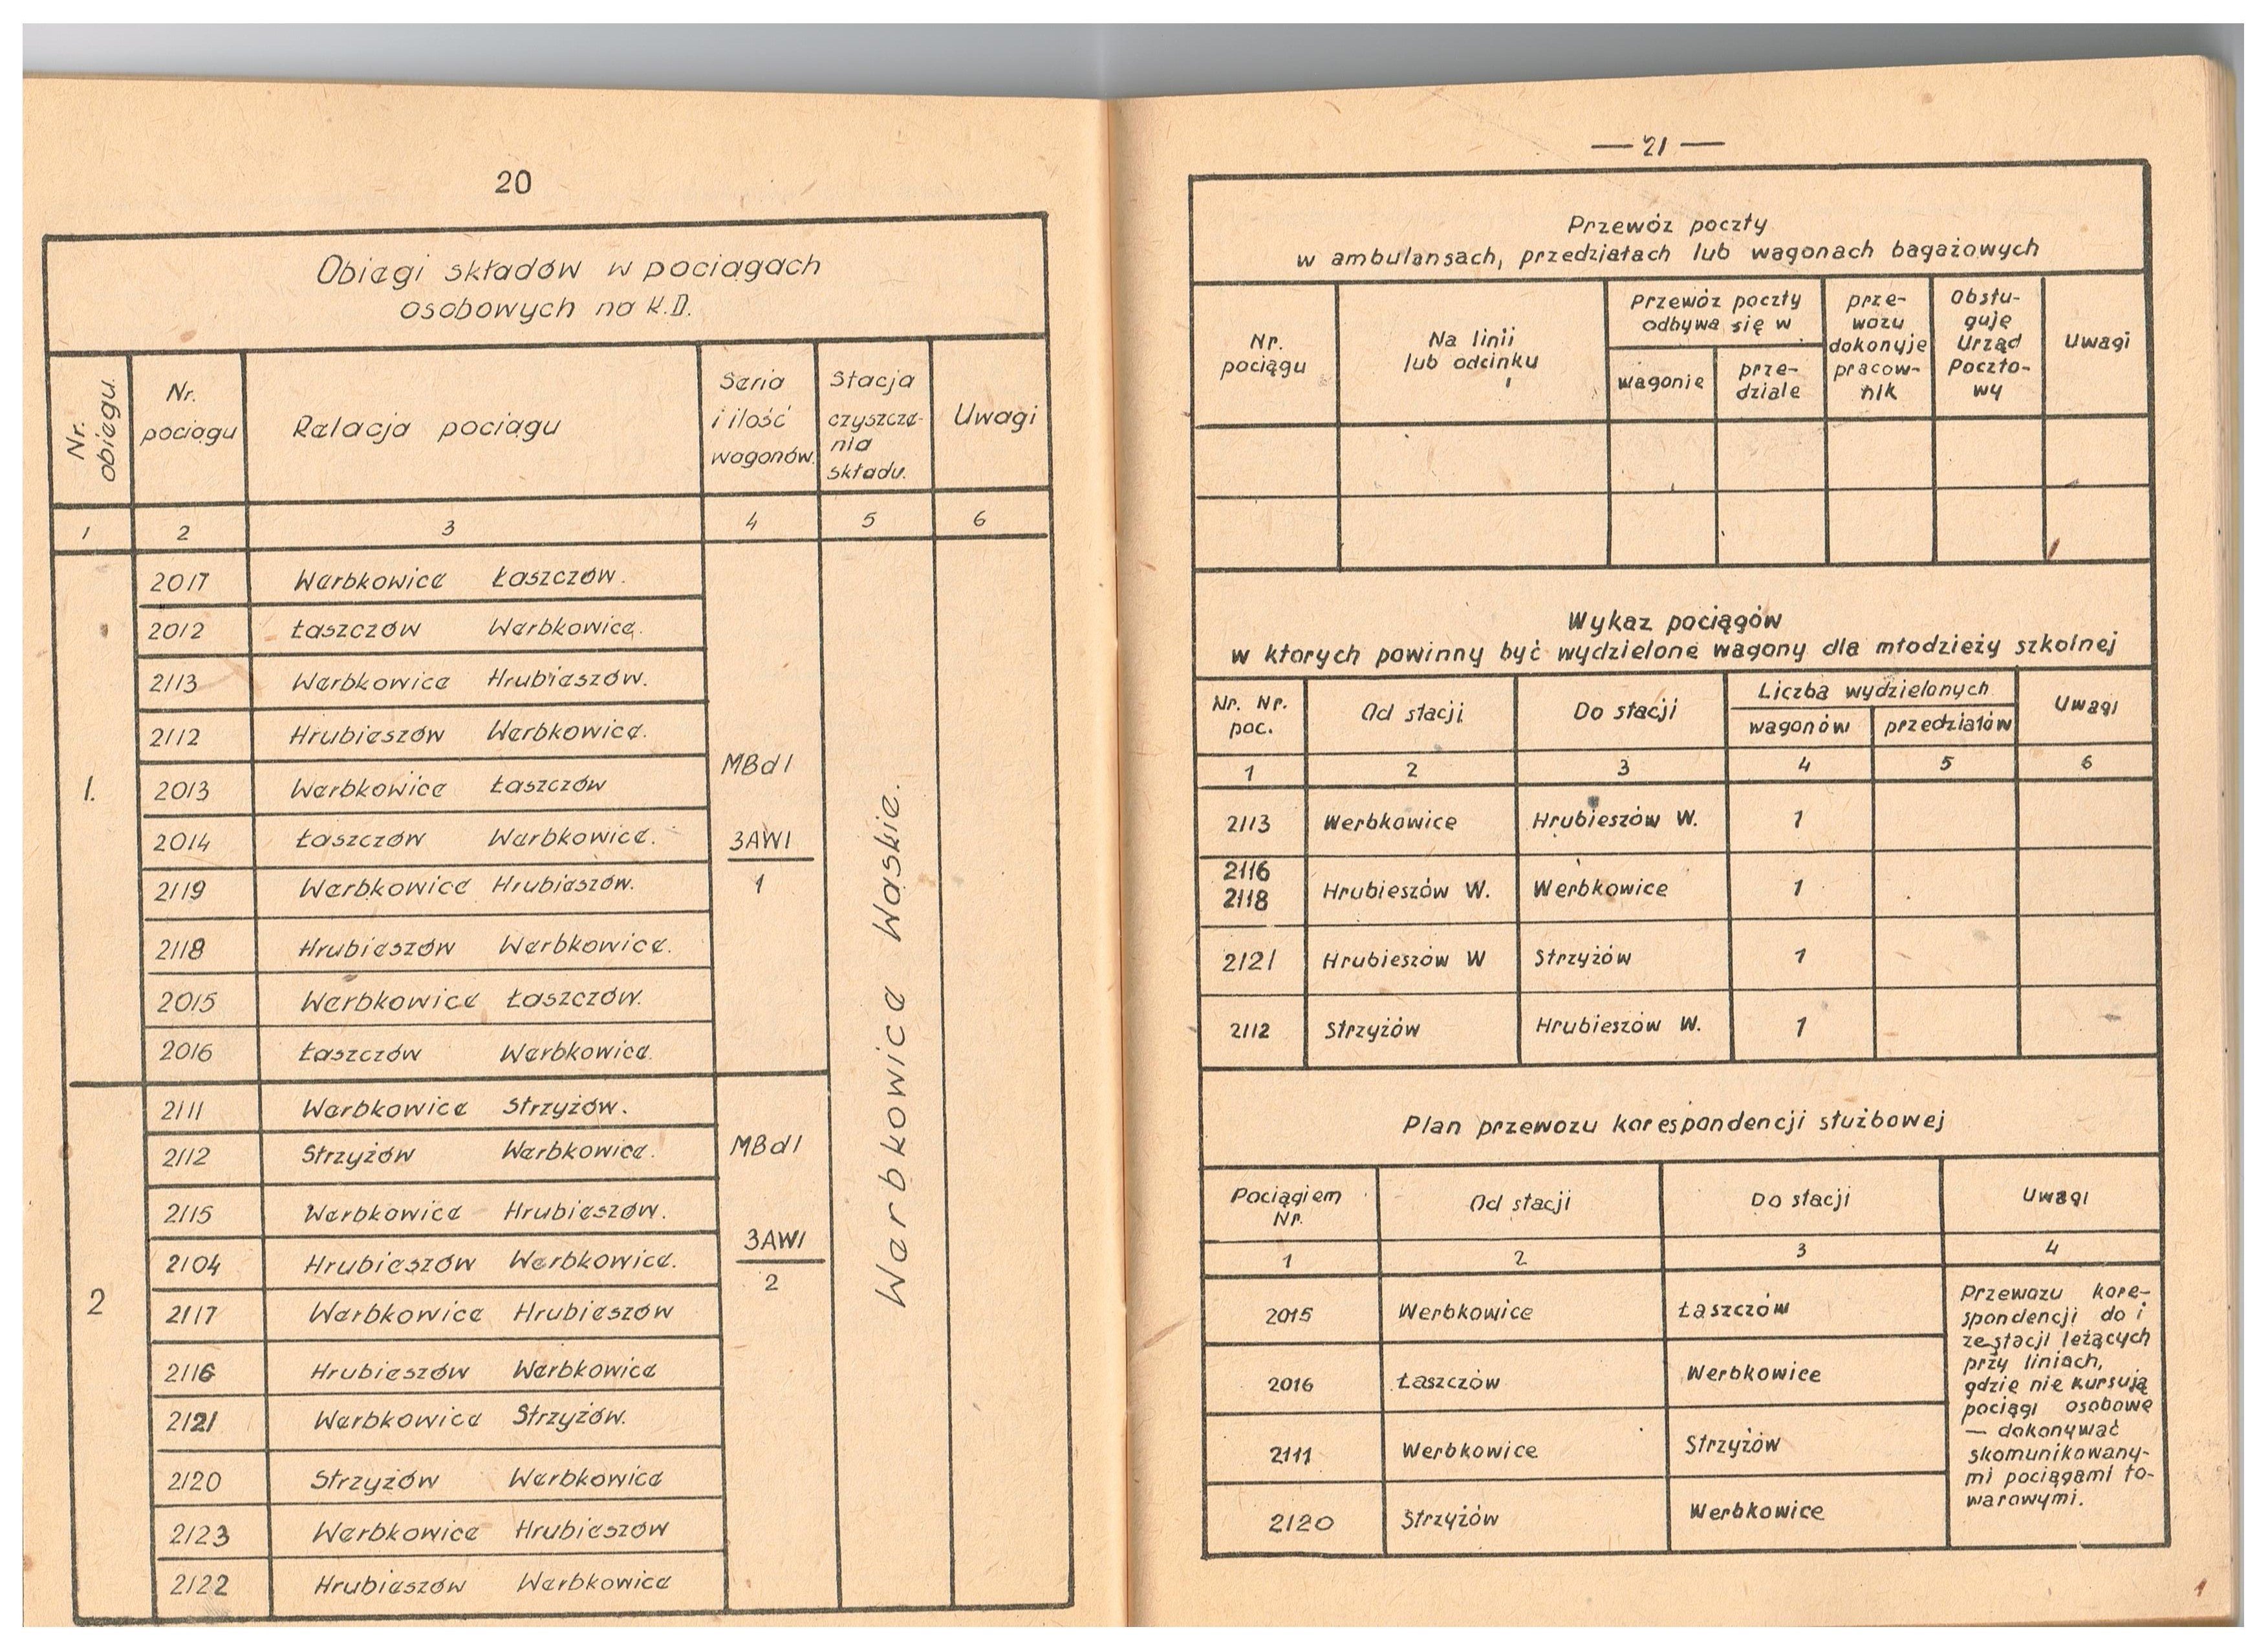 20
Obiegi składów w pociągach
osobowych na K.D.
Nr. obiegu.
Nr. pociągu
Relacja pociągu
Seria i ilość wagonów.
Stacja czyszcze-nia składu.
Uwagi
1 2 3 4 5 6
1.
2017 Werbkowice Łaszczów.
2012 Łaszczów Werbkowice.
2113 Werbkowice Hrubieszów.
2112 Hrubieszów Werbkowice.
2013 Werbkowice Łaszczów
2014 Łaszczów Werbkowice.
2119 Werbkowice Hrubieszów.
2118 Hrubieszów Werbkowice.
2015 Werbkowice Łaszczów.
2016 Łaszczów Werbkowice.
MBd1
3AW1
1
2
2111 Werbkowice Strzyżów.
2112 Strzyżów Werbkowice.
2115 Werbkowice Hrubieszów.
2104 Hrubieszów Werbkowice.
2117 Werbkowice Hrubieszów
2116 Hrubieszów Werbkowice
2121 Werbkowice Strzyżów.
2120 Strzyżów Werbkowice
2123 Werbkowice Hrubieszów
2122 Hrubieszów Werbkowice
MBd1
3AW1
2
Werbkowice Wąskie.
— 21 —
Przewóz poczty
w ambulansach, przedziałach lub wagonach bagażowych
Nr. pociągu
Na linii
lub odcinku
Przewóz poczty
odbywa się w
wagonie
prze-
dziale
prze-
wozu
dokonuje
pracow-
nik
Obsłu-
guje
Urząd
Poczto-
wy
Uwagi
Wykaz pociągów
w których powinny być wydzielone wagony dla młodzieży szkolnej
Nr. Nr.
poc.
Od stacji
Do stacji
Liczba wydzielonych
wagonów przedziałów
Uwagi
1 2 3 4 5 6
2113 Werbkowice Hrubieszów W. 1
2116
2118 Hrubieszów W. Werbkowice 1
2121 Hrubieszów W Strzyżów 1
2112 Strzyżów Hrubieszów W. 1
Plan przewozu korespondencji służbowej
Pociągiem
Nr.
Od stacji
Do stacji
Uwagi
1 2 3 4
2015 Werbkowice Łaszczów
2016 Łaszczów Werbkowice
2111 Werbkowice Strzyżów
2120 Strzyżów Werbkowice
Przewozu kore-
spondencji do i
ze stacji leżących
przy liniach,
gdzie nie kursują
pociągi osobowe
— dokonywać
skomunikowany-
mi pociągami to-
warowymi.